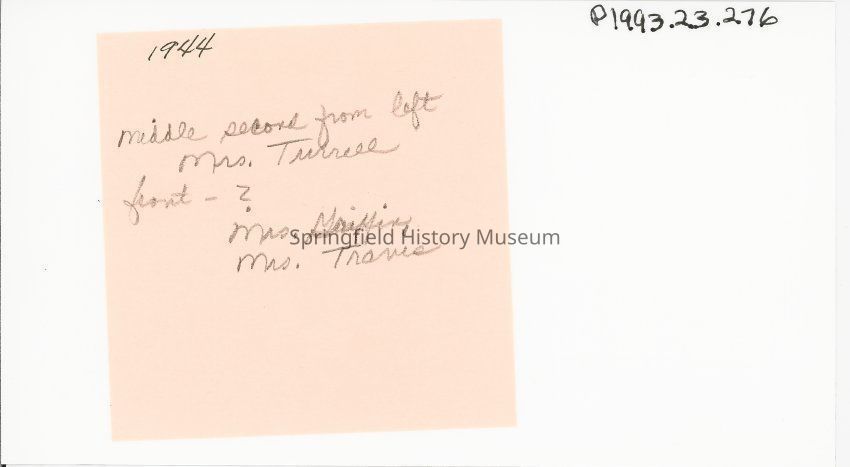 P1993.23.276
1944
middle second from left
Mrs. Turrell
front - ?
Mrs. Griffin
Springfield History Museum
Mrs. Travis